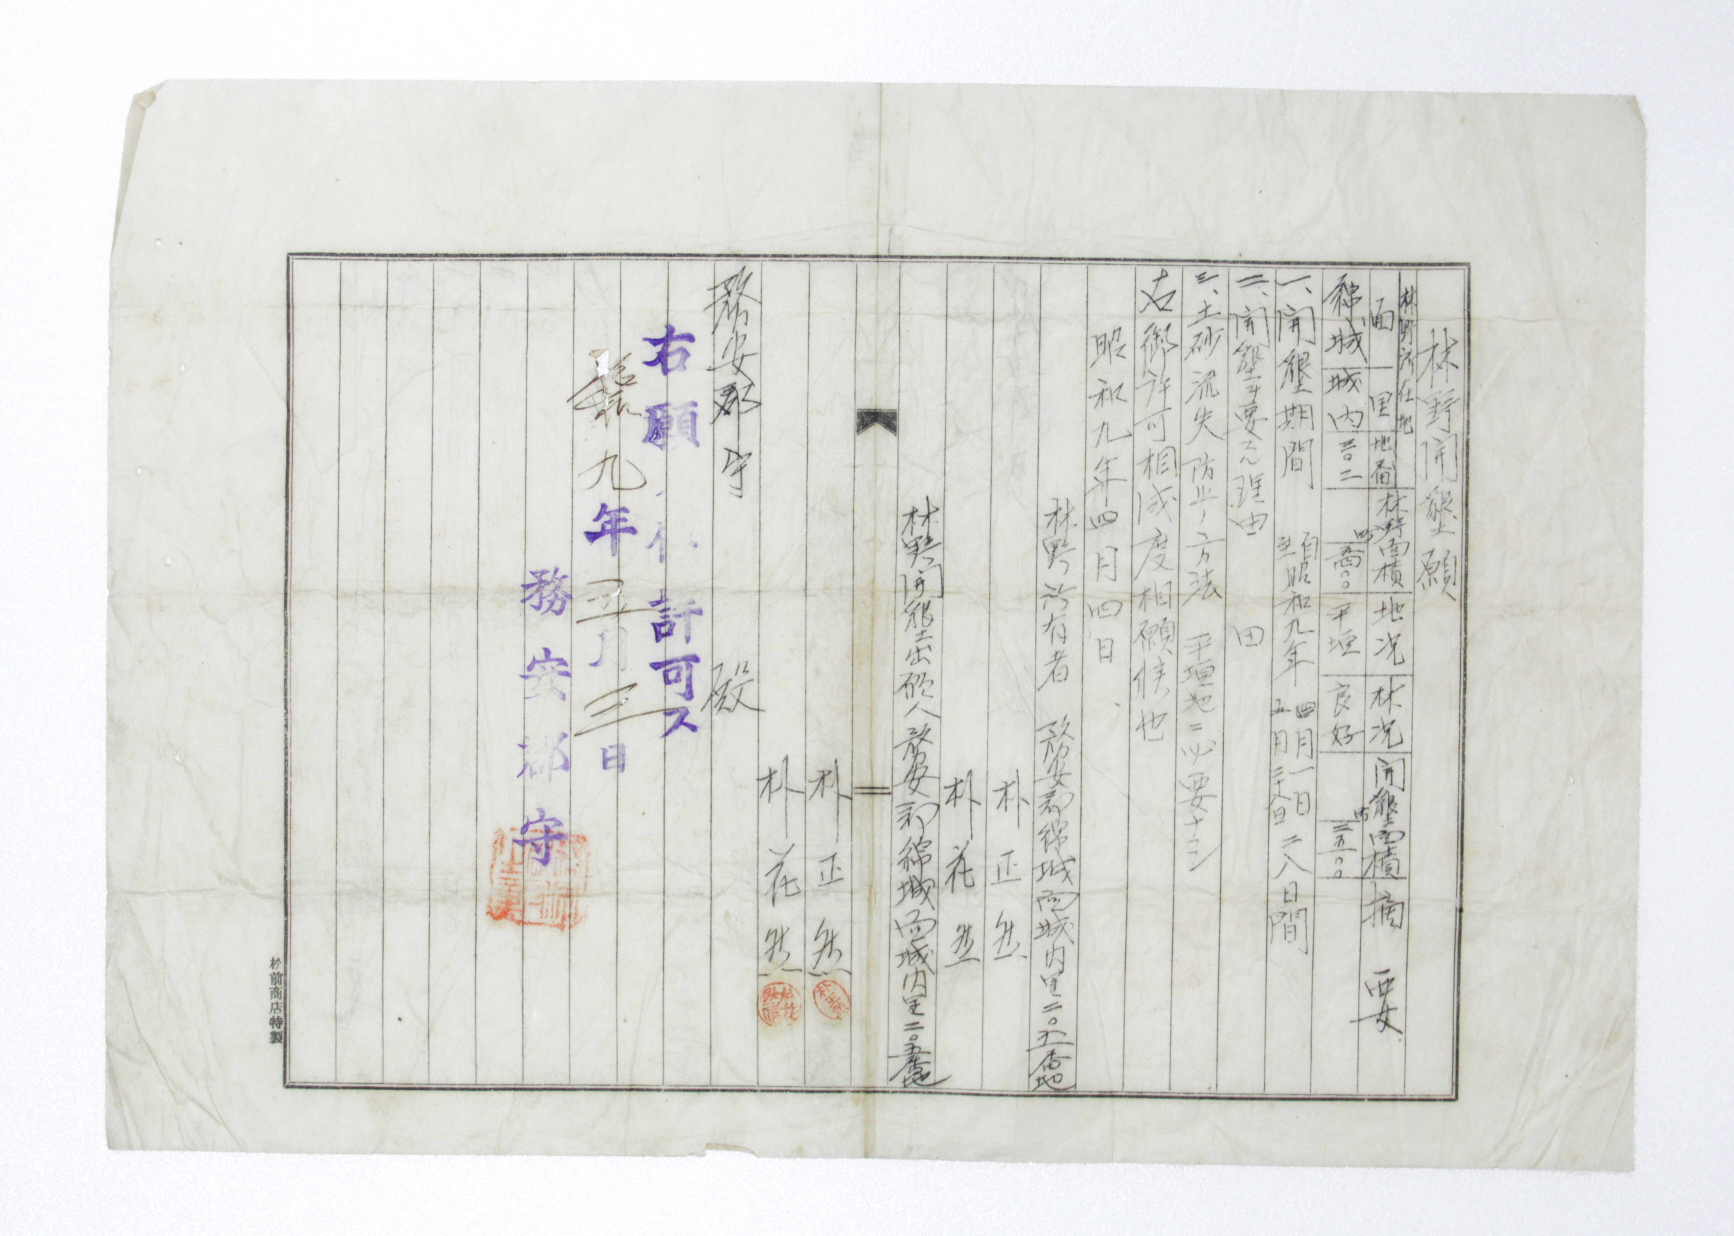 林野開墾願
林野所在地
面 里 地番 林野面積 地況 林況 開墾面積 摘要
綿城 城内 三〇二 平坦 良好 二五〇〇
一、開墾期間 自至昭和九年 四月一日 五月二十八日 二八日間
二、開墾ヲ要スル理由 田
三、土砂流失防止ノ方法 平坦地ニ必要ナシ
右御許可相成度相願候也
昭和九年四月四日
林野所有者 務安郡綿城面城内里二〇五番地
朴正然
朴花然
林野開墾出願人 務安郡綿城面城内里二〇五番地
朴正然
朴花然
務安郡守 殿
右願 許可ス
昭和九年五月三日
務安郡守
松前商店特製